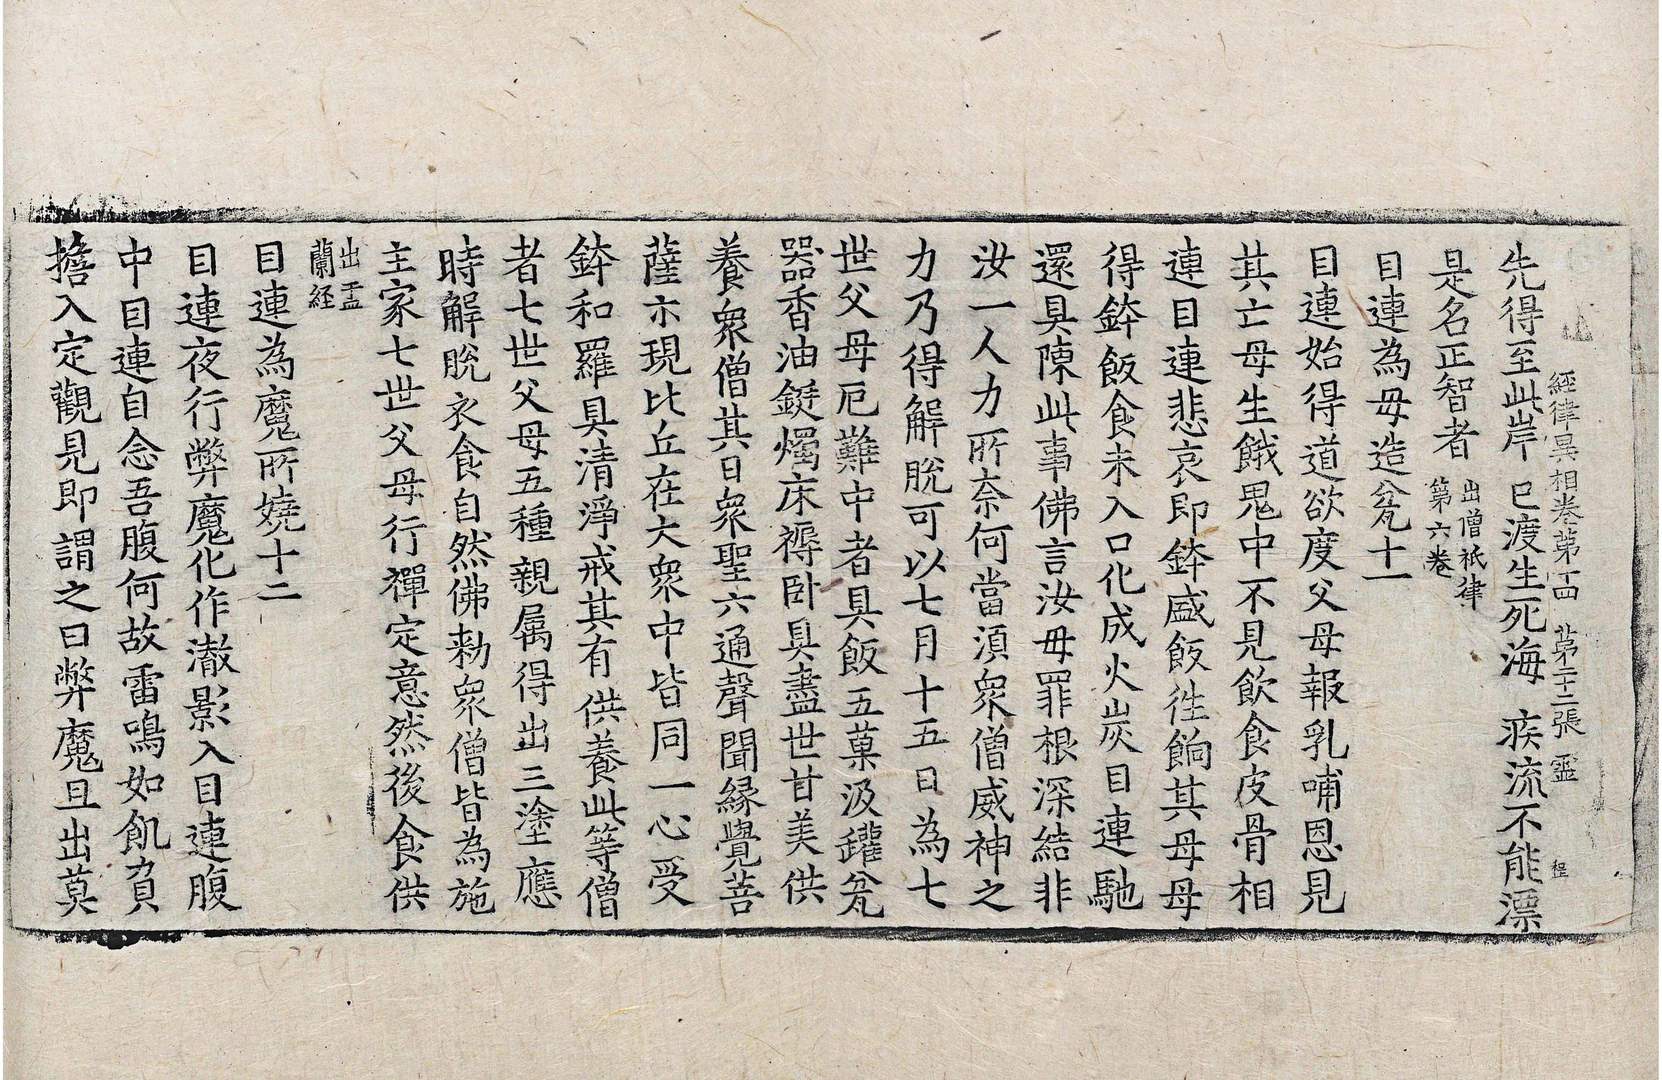 經律異相卷第十四　第二十二張　靈　程
先得至此岸　已渡生死海　疾流不能漂
是名正智者　出僧祇律
第六卷
目連為母造盆十一
目連始得道欲度父母報乳哺恩見
其亡母生餓鬼中不見飲食皮骨相
連目連悲哀即鉢盛飯徃餉其母母
得鉢飯食未入口化成火炭目連馳
還具陳此事佛言汝母罪根深結非
汝一人力所奈何當湏衆僧威神之
力乃得解脫可以七月十五日為七
世父母厄難中者具飯五菓汲鑵盆
器香油鋌燭床褥卧具盡世甘美供
養衆僧其日衆聖六通聲聞緣覺菩
薩亦現比丘在大衆中皆同一心受
鉢和羅具清淨戒其有供養此等僧
者七世父母五種親属得出三塗應
時解脫衣食自然佛勑衆僧皆為施
主家七世父母行禪定意然後食供
出盂
蘭経
目連為魔所嬈十二
目連夜行弊魔化作澈影入目連腹
中目連自念吾腹何故雷鳴如飢負
擔入定觀見即謂之曰弊魔且出莫